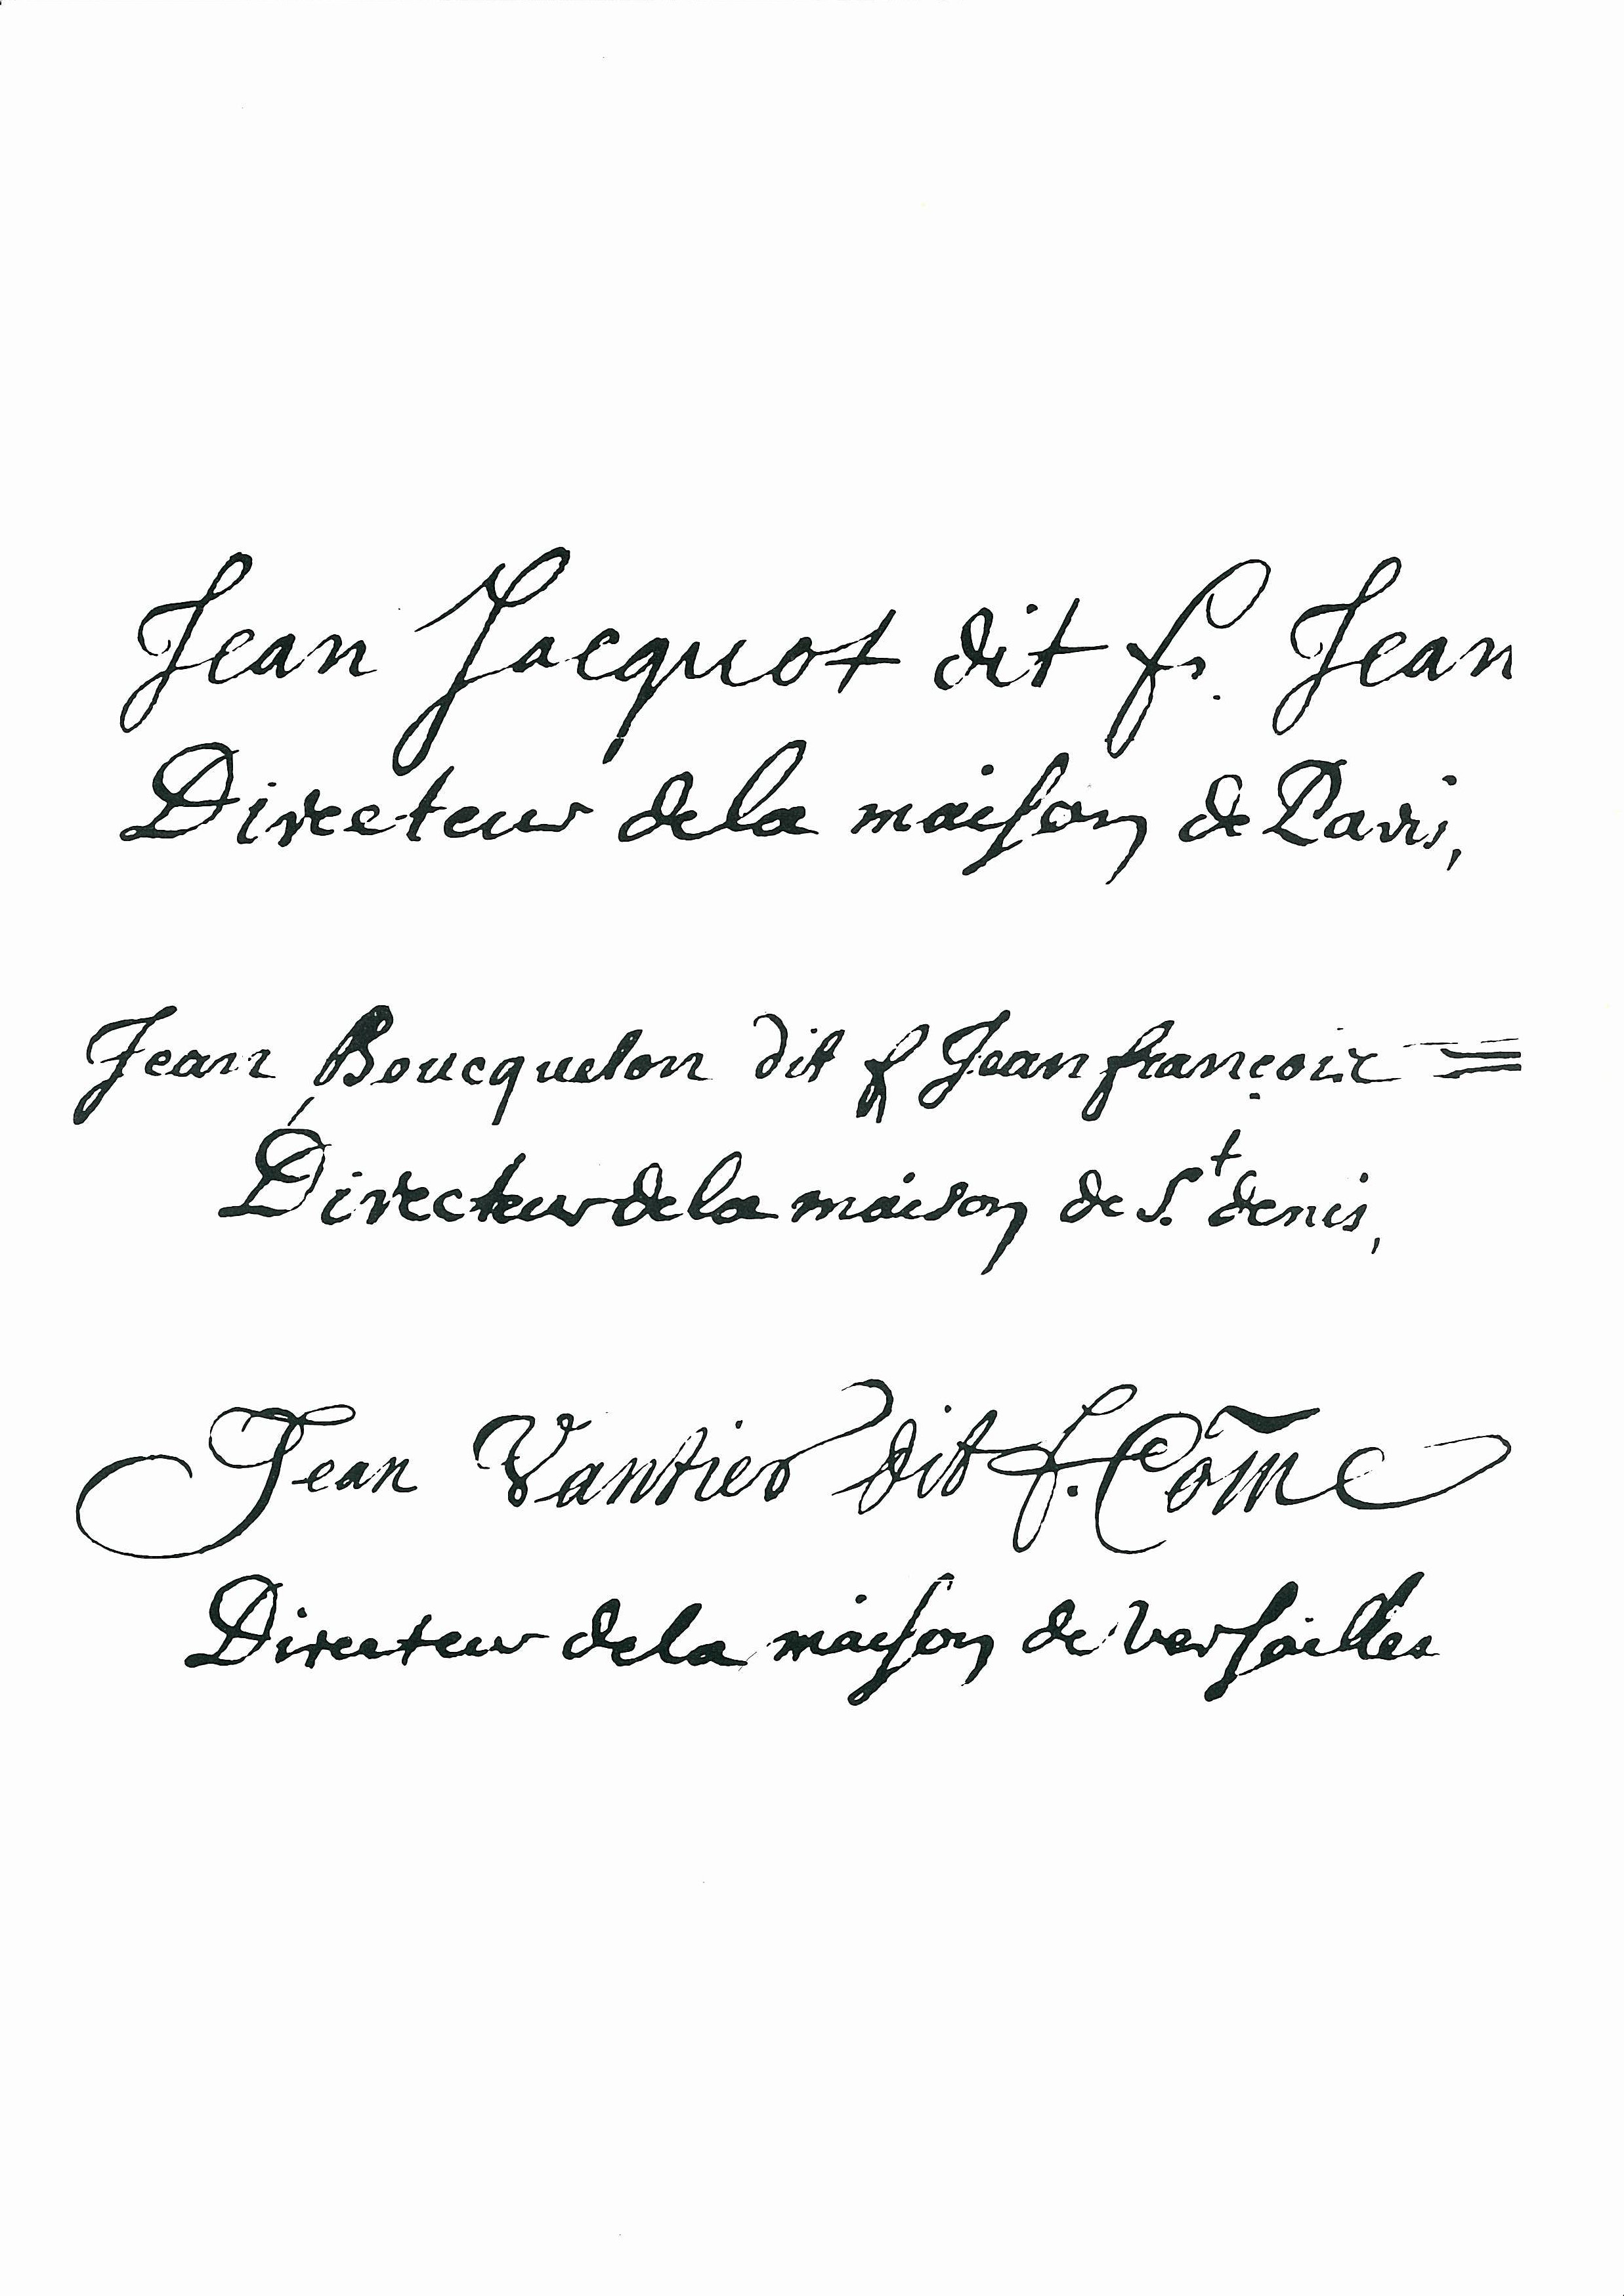 Jean Jacquot dit fr. Jean
Directeur de la maison de Paris,
Jean Boucqueton dit f Jean françois
Directeur de la maison de S.t denis,
Jean Vantier dit f. Côme
Directeur de la maison de Versailles